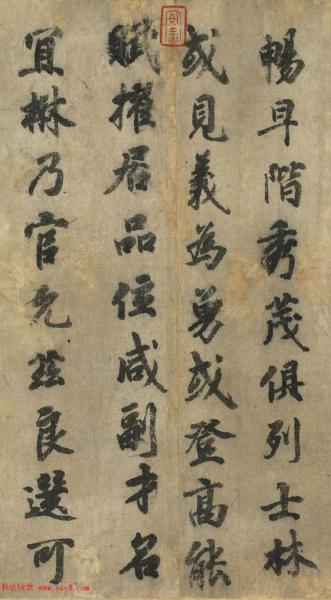 暢早階秀茂俱列士林
或見義為勇或登高能
賦擢居品位咸副才名
宜楙乃官允茲良選可
书法欣赏 www.yac8.com